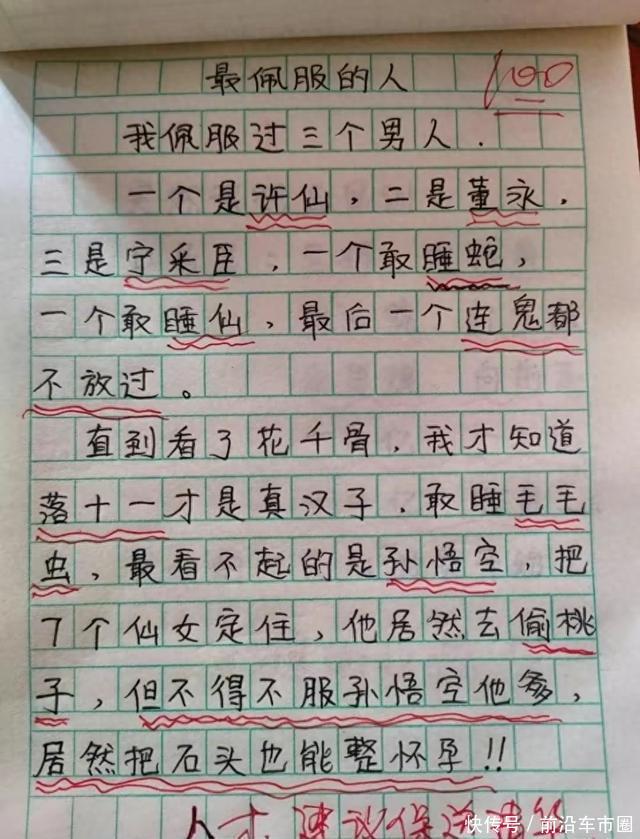 最佩服的人
100
我佩服过三个男人.
一个是许仙,二是董永,
三是宁采臣,一个敢睡蛇,
一个敢睡仙,最后一个连鬼都
不放过。
直到看了花千骨,我才知道
落十一才是真汉子.敢睡毛毛
虫,最看不起的是孙悟空,把
7个仙女定住,他居然去偷桃
子,但不得不服孙悟空他爹,
居然把石头也能整怀孕!!
人才,建议保送
快传号/前沿车市圈